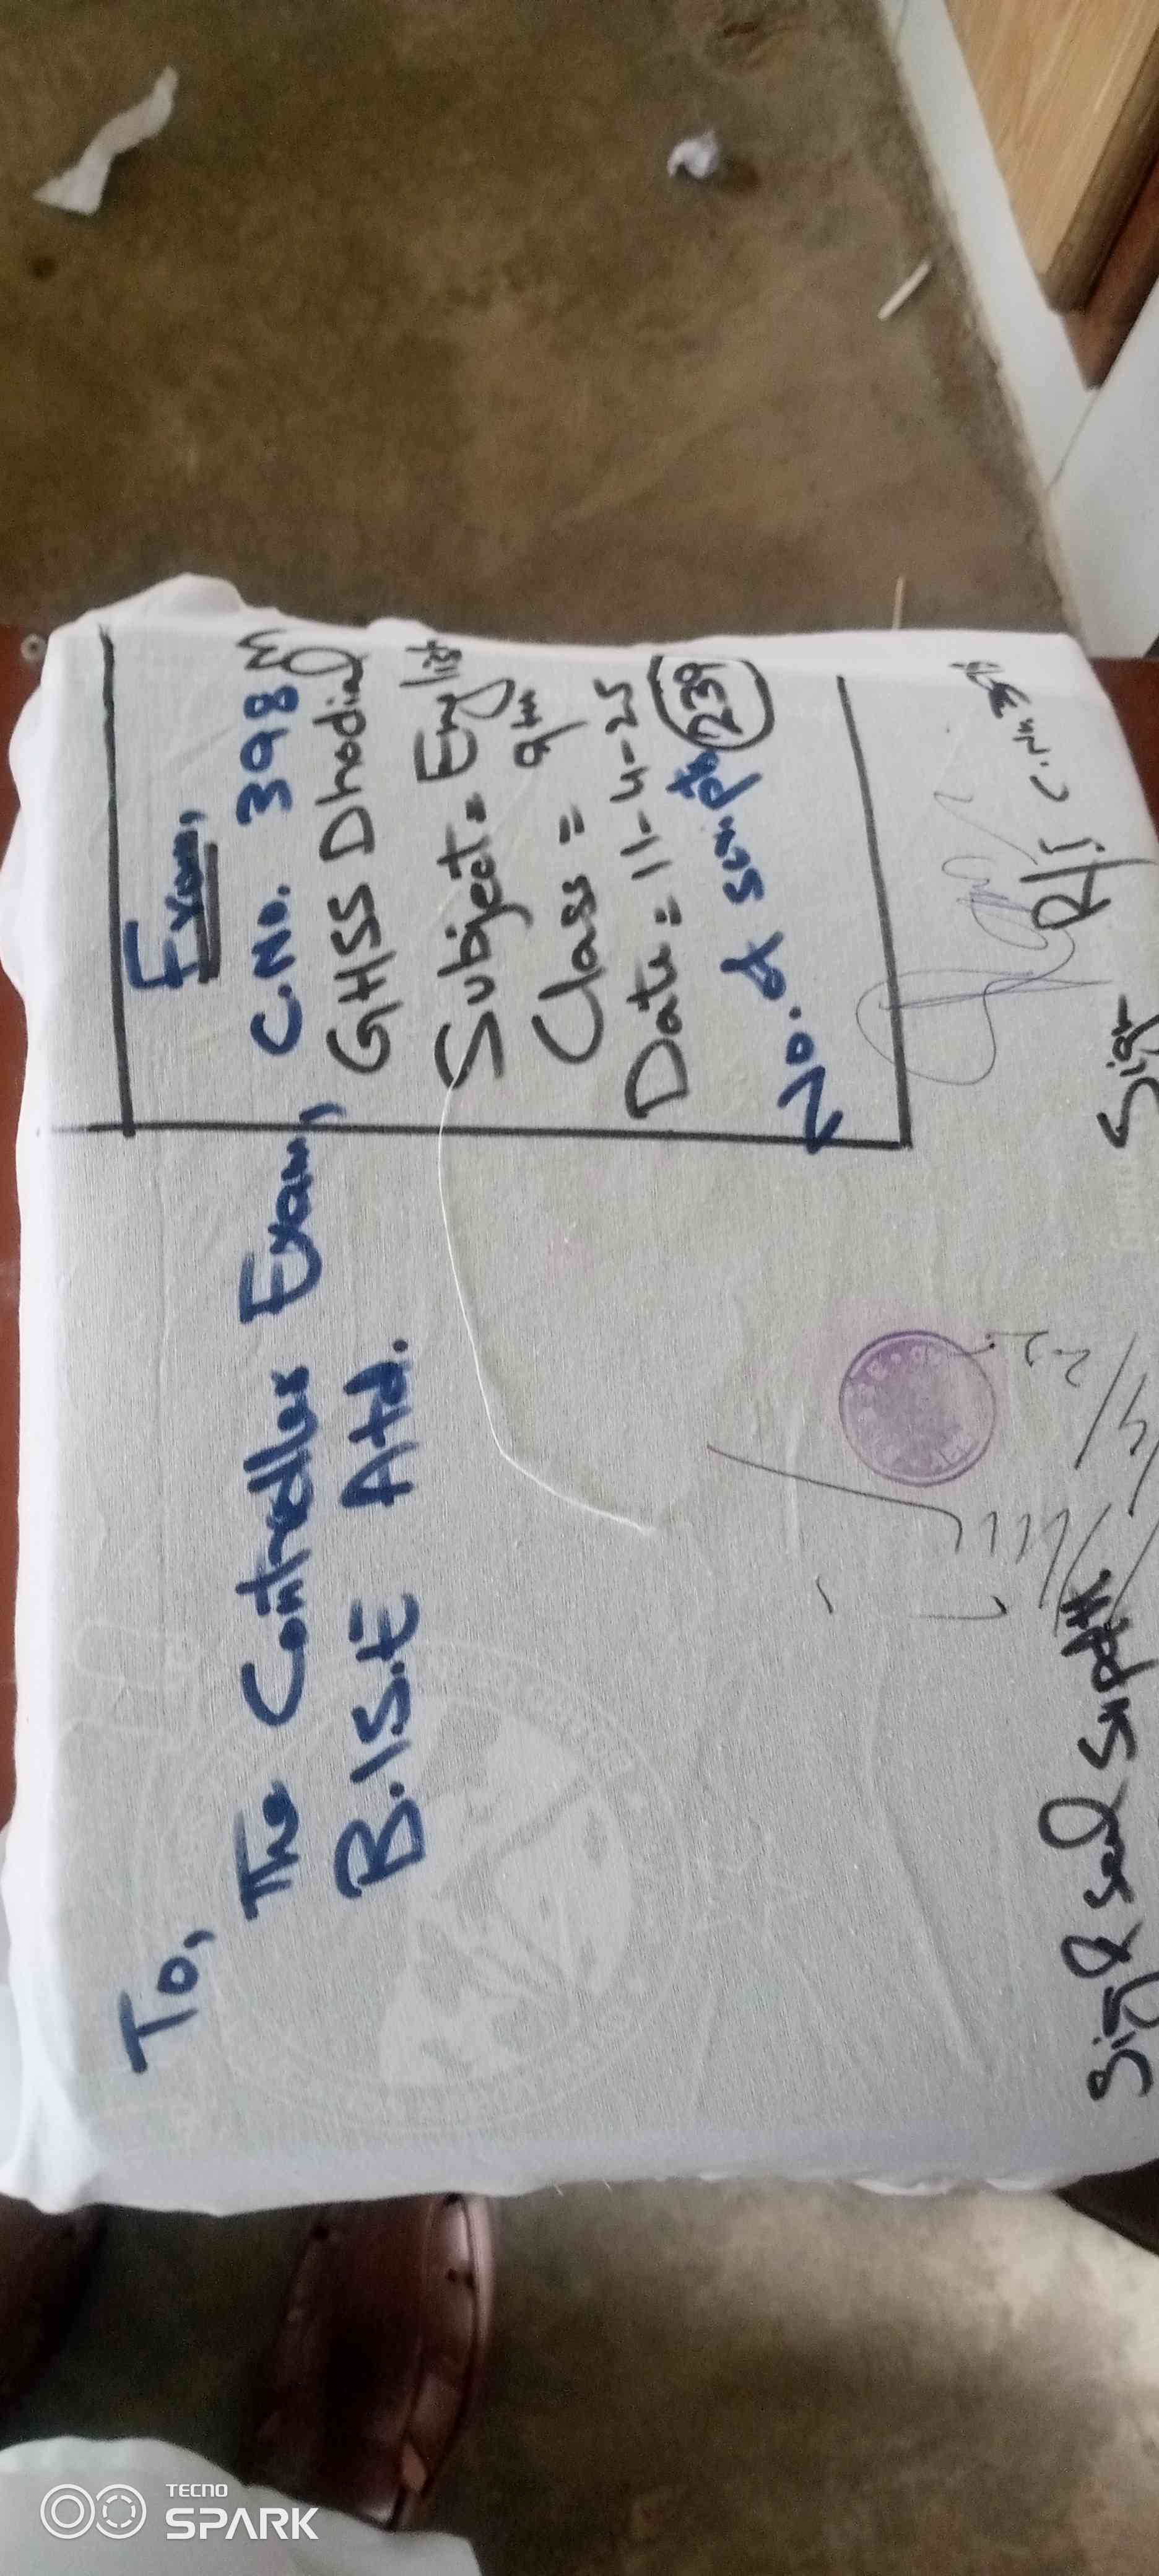 To,
The Controller Exam,
B.I.S.E Atd.
Exam,
C.No. 398
GHSS Dhodial
Subject = English
Class = 9th
Date = 11-4-25
No. of scripts 239
R/I
Sign
Sig & seal Supdtt.
TECNO
SPARK